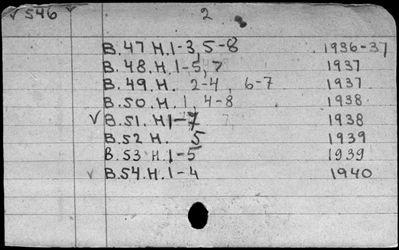 √ 546 √ 2
B.47 H.1-3,5-8 1936-37
B.48.H.1-5,7 1937
B.49.H. 2-4, 6-7 1937
B.50.H.1, 4-8 1938
√ B.51.H1-7 1938
B.52 H. 5 1939
B.53 H.1-5 1939
√ B.54.H.1-4 1940